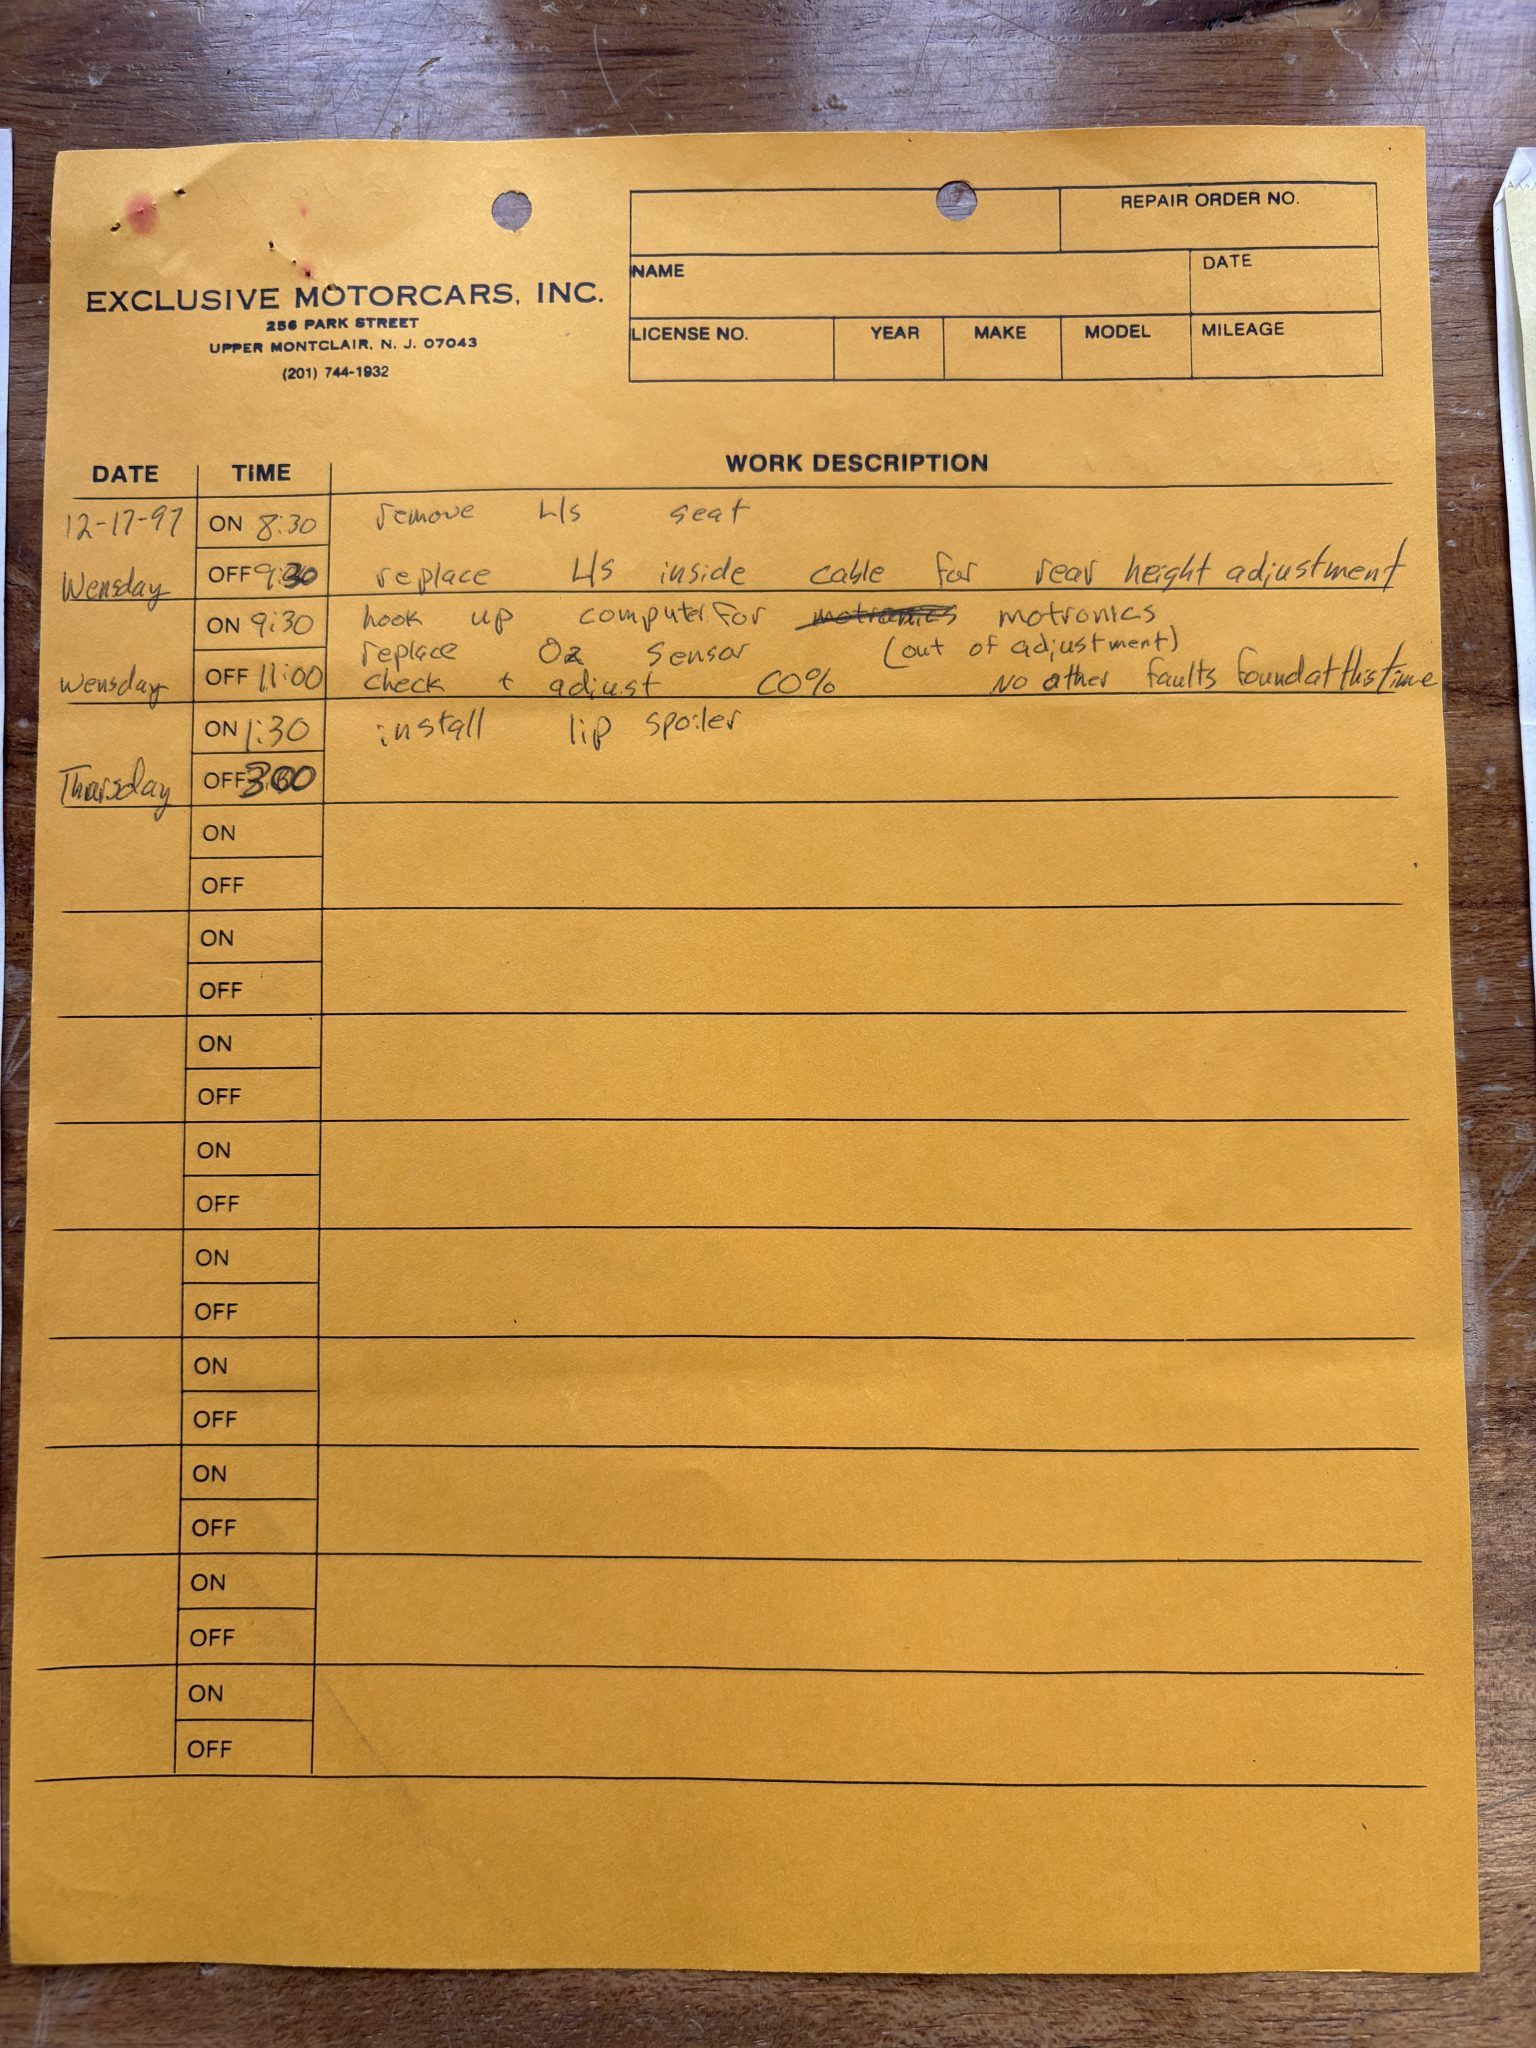 REPAIR ORDER NO.
NAME
DATE
EXCLUSIVE MOTORCARS, INC.
256 PARK STREET
UPPER MONTCLAIR, N. J. 07043
(201) 744-1932
LICENSE NO. YEAR MAKE MODEL MILEAGE
DATE TIME WORK DESCRIPTION
12-17-97 ON 8:30 remove L/s seat
Wensday OFF 9:30 replace L/s inside cable for rear height adjustment
ON 9:30 hook up computer for motronics motronics
replace O2 sensor (out of adjustment)
Wensday OFF 11:00 check + adjust CO% No other faults found at this time
ON 1:30 install lip spoiler
Thursday OFF 3:00
ON
OFF
ON
OFF
ON
OFF
ON
OFF
ON
OFF
ON
OFF
ON
OFF
ON
OFF
ON
OFF